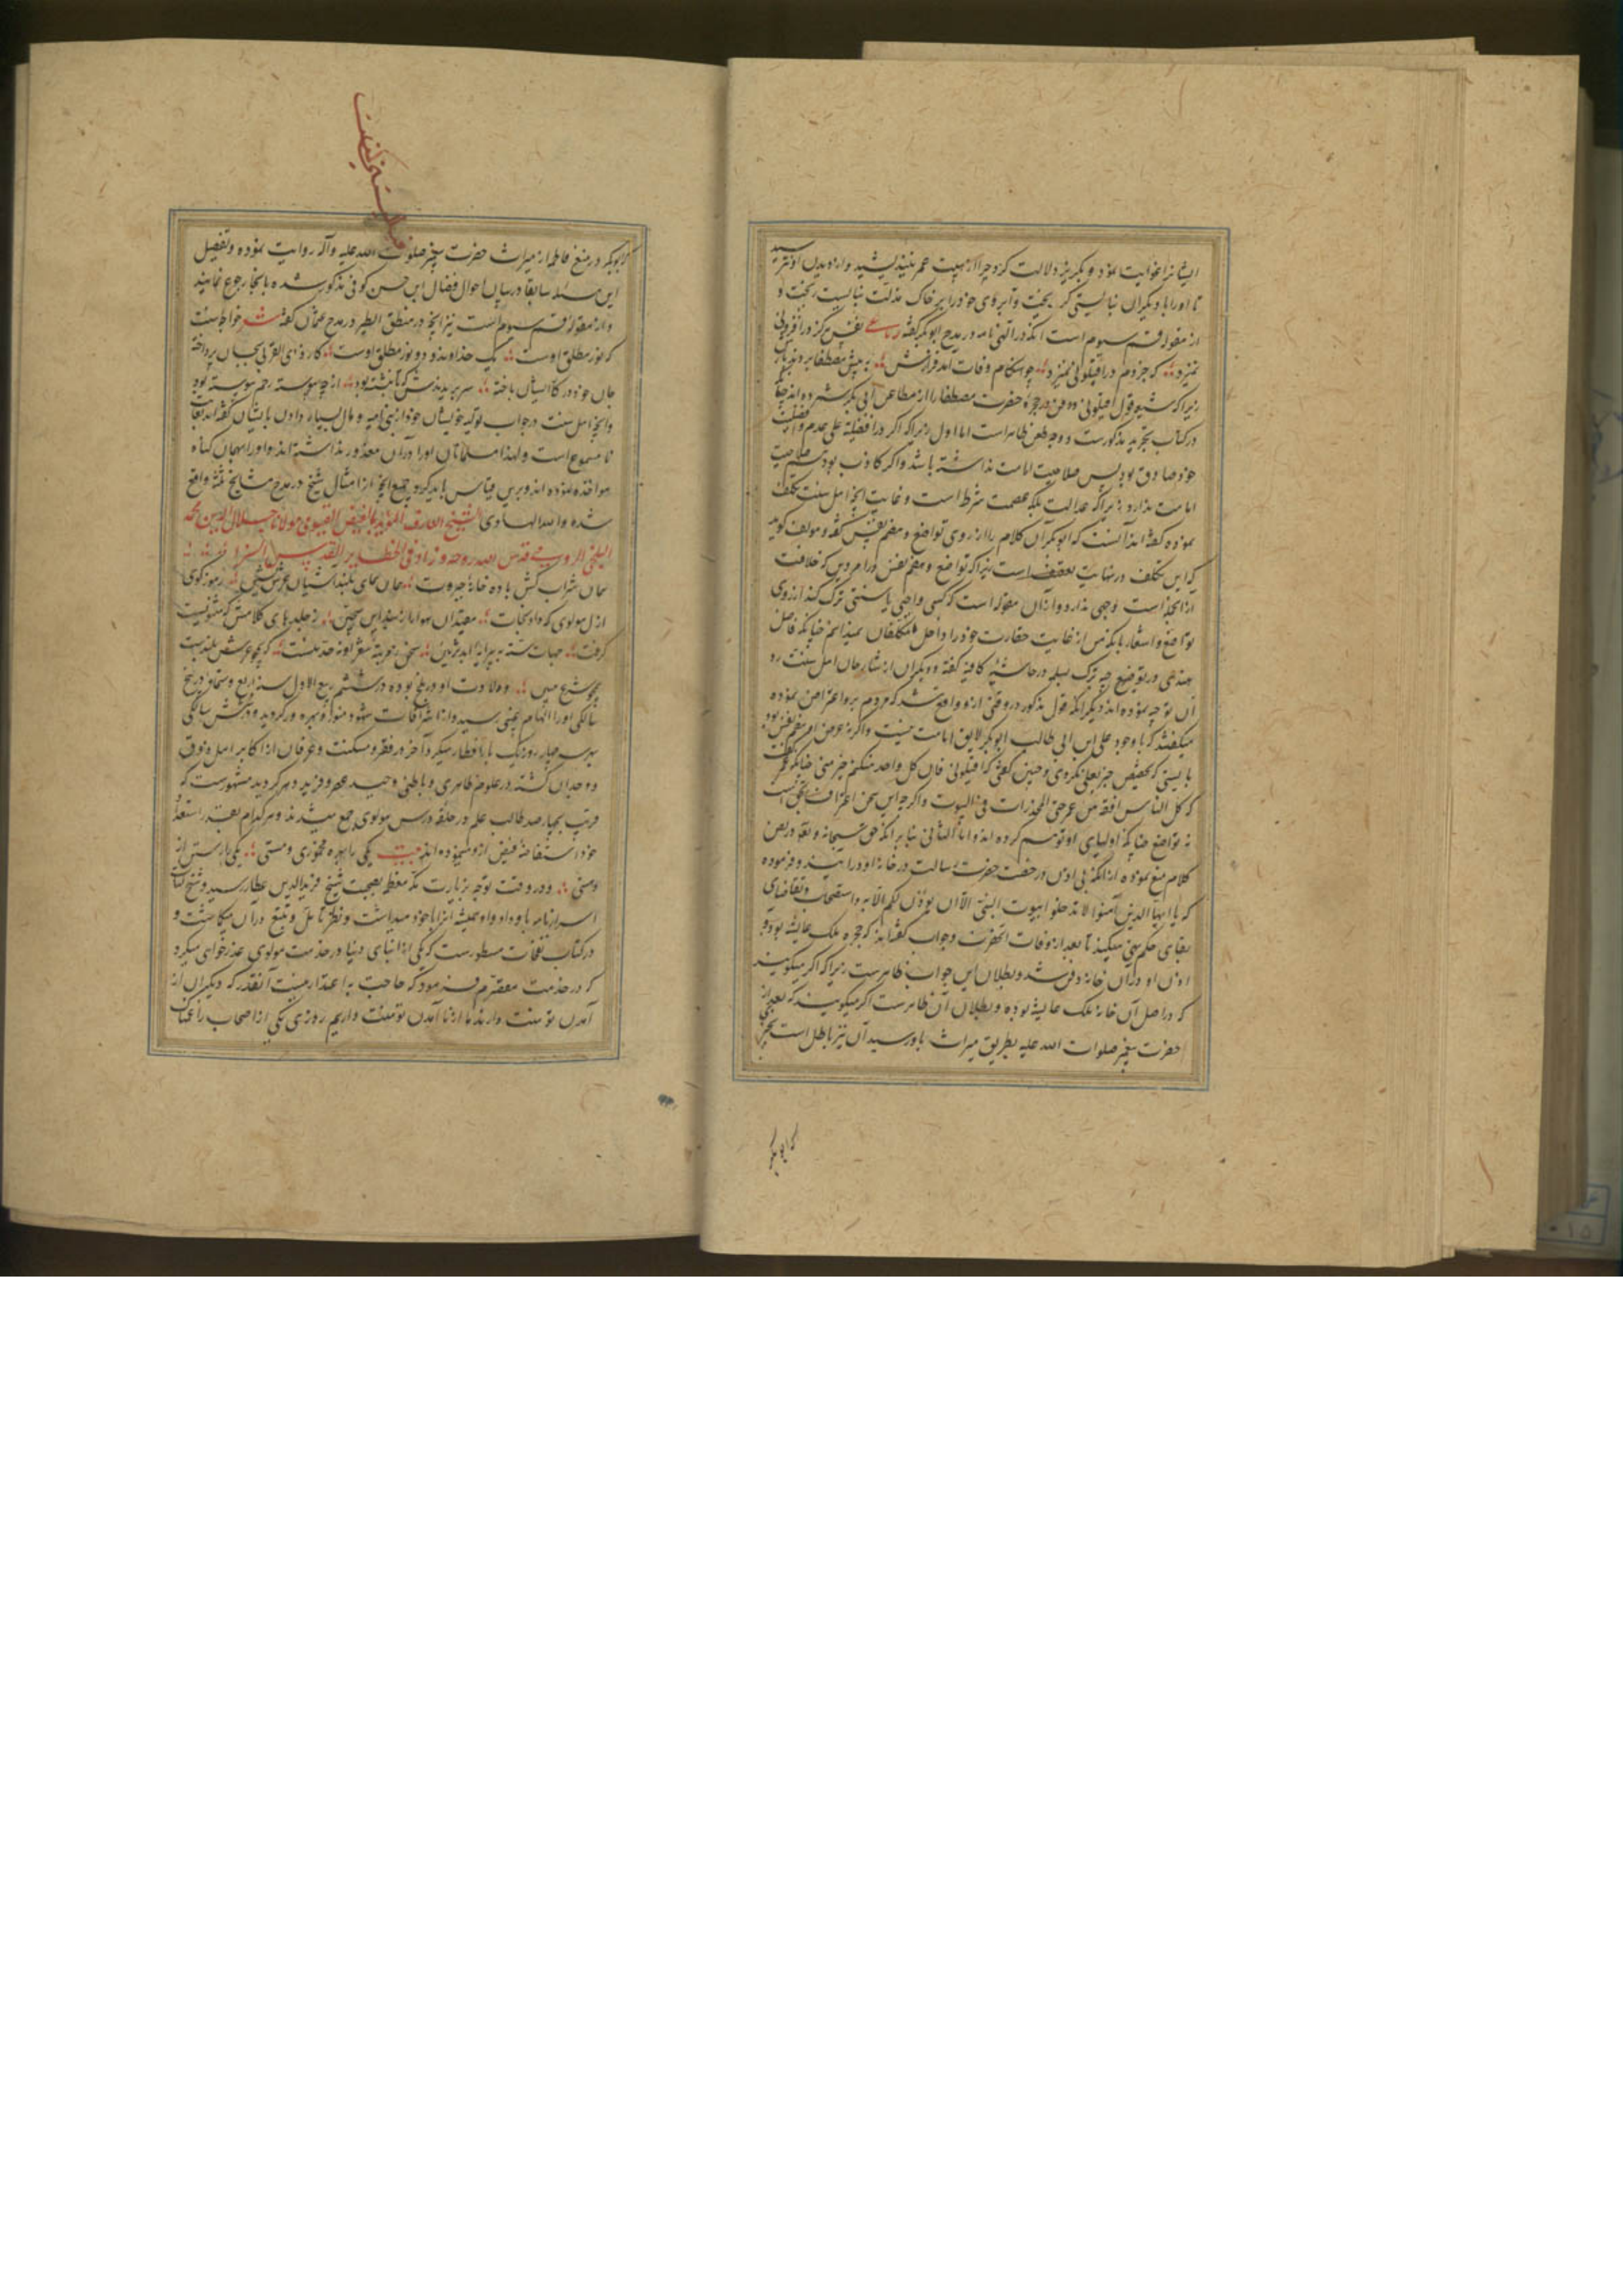 ایشانرا غوایت نمود و بگریز دلالت کرد چرا از هیبت عمر نیندیشید و از دیدن او نترسید
تا او را با دیگران نبایستی گریخت و آبروی خود را بر خاک مذلت نبایست ریخت و
از مقوله قسم سیوم است آنکه در الهی نامه در مدح ابوبکر گفته
نمیزد که جز دم در اقیلونی نمیزد چو هنگام وفات آمد فرازش به پیش مصطفا بردند بازش
زیرا که شیعه قول اقیلونی و دفن در حجره حضرت مصطفا را از مطاعن ابی بکر شمرده اند چنانکه
در کتاب تجرید مذکورست و وجه طعن ظاهر است اما اول زیرا که اگر در افضلیة علی و عدم افضلیت
خود صادق بود پس صلاحیت امامت نداشته باشد و اگر کاذب بود هم صلاحیت
امامت ندارد زیرا که عدالت بلکه عصمت شرط است و غایت آنچه اهل سنت تکلف
نموده گفته اند آنست که ابوبکر آن کلام را از روی تواضع و هضم نفس گفته و مولف گوید
که این تکلف در نهایت ضعف است زیرا که تواضع و هضم نفس در امر دین که خلافت
از آنجا است وجهی ندارد و از آن مقوله است که کسی واجبی یا سنتی ترک کند از روی
تواضع و اشعار بآنکه من از غایت حقارت خود را داخل مکلفان نمیدانم چنانکه فاضل
هندی در توضیح وجه ترک بسمله در حاشیه کافیه گفته و دیگران از شارحان اهل سنت رد
آن توجیه نموده اند دیگر آنکه قول مذکور در وقتی از و واقع شد که مردم برو اعتراض نموده
میگفتند که با وجود علی ابن ابی طالب ابوبکر لایق امامت نیست و اگر نه غرض او هضم نفس بود
بایستی که تخصیص خیر بعلی نکردی و چنین گفتی که اقیلونی فان کل واحد منکم خیر منی چنانکه عمر گفت
که کل الناس افقه من عمر حتی المخدرات فی البیوت و اگر چه این سخن اعتراف بحق است
نه تواضع چنانکه اولیای او توهم کرده اند و اما الثانی بنا بر آنکه حق سبحانه و تعالی در نص
کلام منع نموده از آنکه بی اذن در حضرت رسالت در خانه او درآیند و فرموده
که یا ایها الذین آمنوا لا تدخلوا بیوت النبی الا ان یؤذن لکم الآیه و استصحاب و تقاضای
بقای حکم نهی میکند تا بعد از وفات آنحضرت و جواب گفته اند که حجره ملک عایشه بود و
اذن او در آن خانه دفن شد و بطلان این جواب ظاهرست زیرا که اگر میگویند
که در اصل آن خانه ملک عایشه بوده و بطلان آن ظاهرست اگر میگویند که بعد از
حضرت پیغمبر صلوات الله علیه بطریق میراث باو رسید آن نیز باطل است بخبر
که ابوبکر
که ابوبکر در منع فاطمه از میراث حضرت پیغمبر صلوات الله علیه و آله روایت نموده و تفصیل
این مسئله سابقا در بیان احوال فضال ابن حسن کوفی مذکور شده بآنجا رجوع نمایند
و از مقوله قسم سیوم است نیز آنچه در منطق الطیر در مدح عثمان گفته شعر خواجه سنت
که نور مطلق اوست یک خداوند دو نور مطلق اوست کار ذی القربی بجان پرداخته
جان خود در کار ایشان باخته
و آنچه اهل سنت در جواب تولیه خویشان خود از بنی امیه و مال بسیار دادن بایشان گفته اند
نا مسموع است و لهذا مسلمانان او را در آن معذور نداشته اند و او را بهمان گناه
مواخذه نموده اند و برین قیاس باید کرد جمیع آنچه از امثال شیخ در مدح مشایخ ثلثه واقع
شده و الله الهادی الشیخ العارف المؤید بالفیض القیومی مولانا جلال الدین محمد
البلخی الرومی قدس الله روحه و زاد فی حظایر القدس
همان شراب کش باده خانه جبروت همان همای بلند آشیان عرش نشین رموز گوی
ازل مولوی که داد نجات مقیدان هوا را
گرفت
چو شرع مبین ولادت او در بلخ بوده در ششم ربیع الاول سنه اربع و ستمائه در پنج
سالگی او را
بهر سه چهار روز یک بار افطار میکرد و آخر در فقر و مسکنت و عرفان از اکابر اهل ذوق
و وجدان گشته در علوم ظاهری و باطنی وحید عصر و فرید دهر گردید مشهورست که
قریب بچهار صد طالب علم در حلقه درس مولوی جمع میشدند و هر کدام بقدر استعداد
خود استفاضه فیض از و مینموده اند بیت یکی را بهره مخموری و مستی یکی را رستن از
و منی و در وقت توجه بزیارت مکه معظمه بصحبت شیخ فرید الدین عطار رسید و شیخ کتاب
اسرار نامه باو داد و او همیشه آنرا با خود میداشت و نظر تأمل و تتبع در آن میگماشت و
در کتاب نفحات مسطورست که یکی از ابنای دنیا در خدمت مولوی عذر خواهی میکرد
که در خدمت مقصرم فرمود که حاجت به اعتذار نیست آنقدر که دیگران از
آمدن تو منت دارند ما از نا آمدن تو منت داریم روزی یکی از اصحاب را غمناک